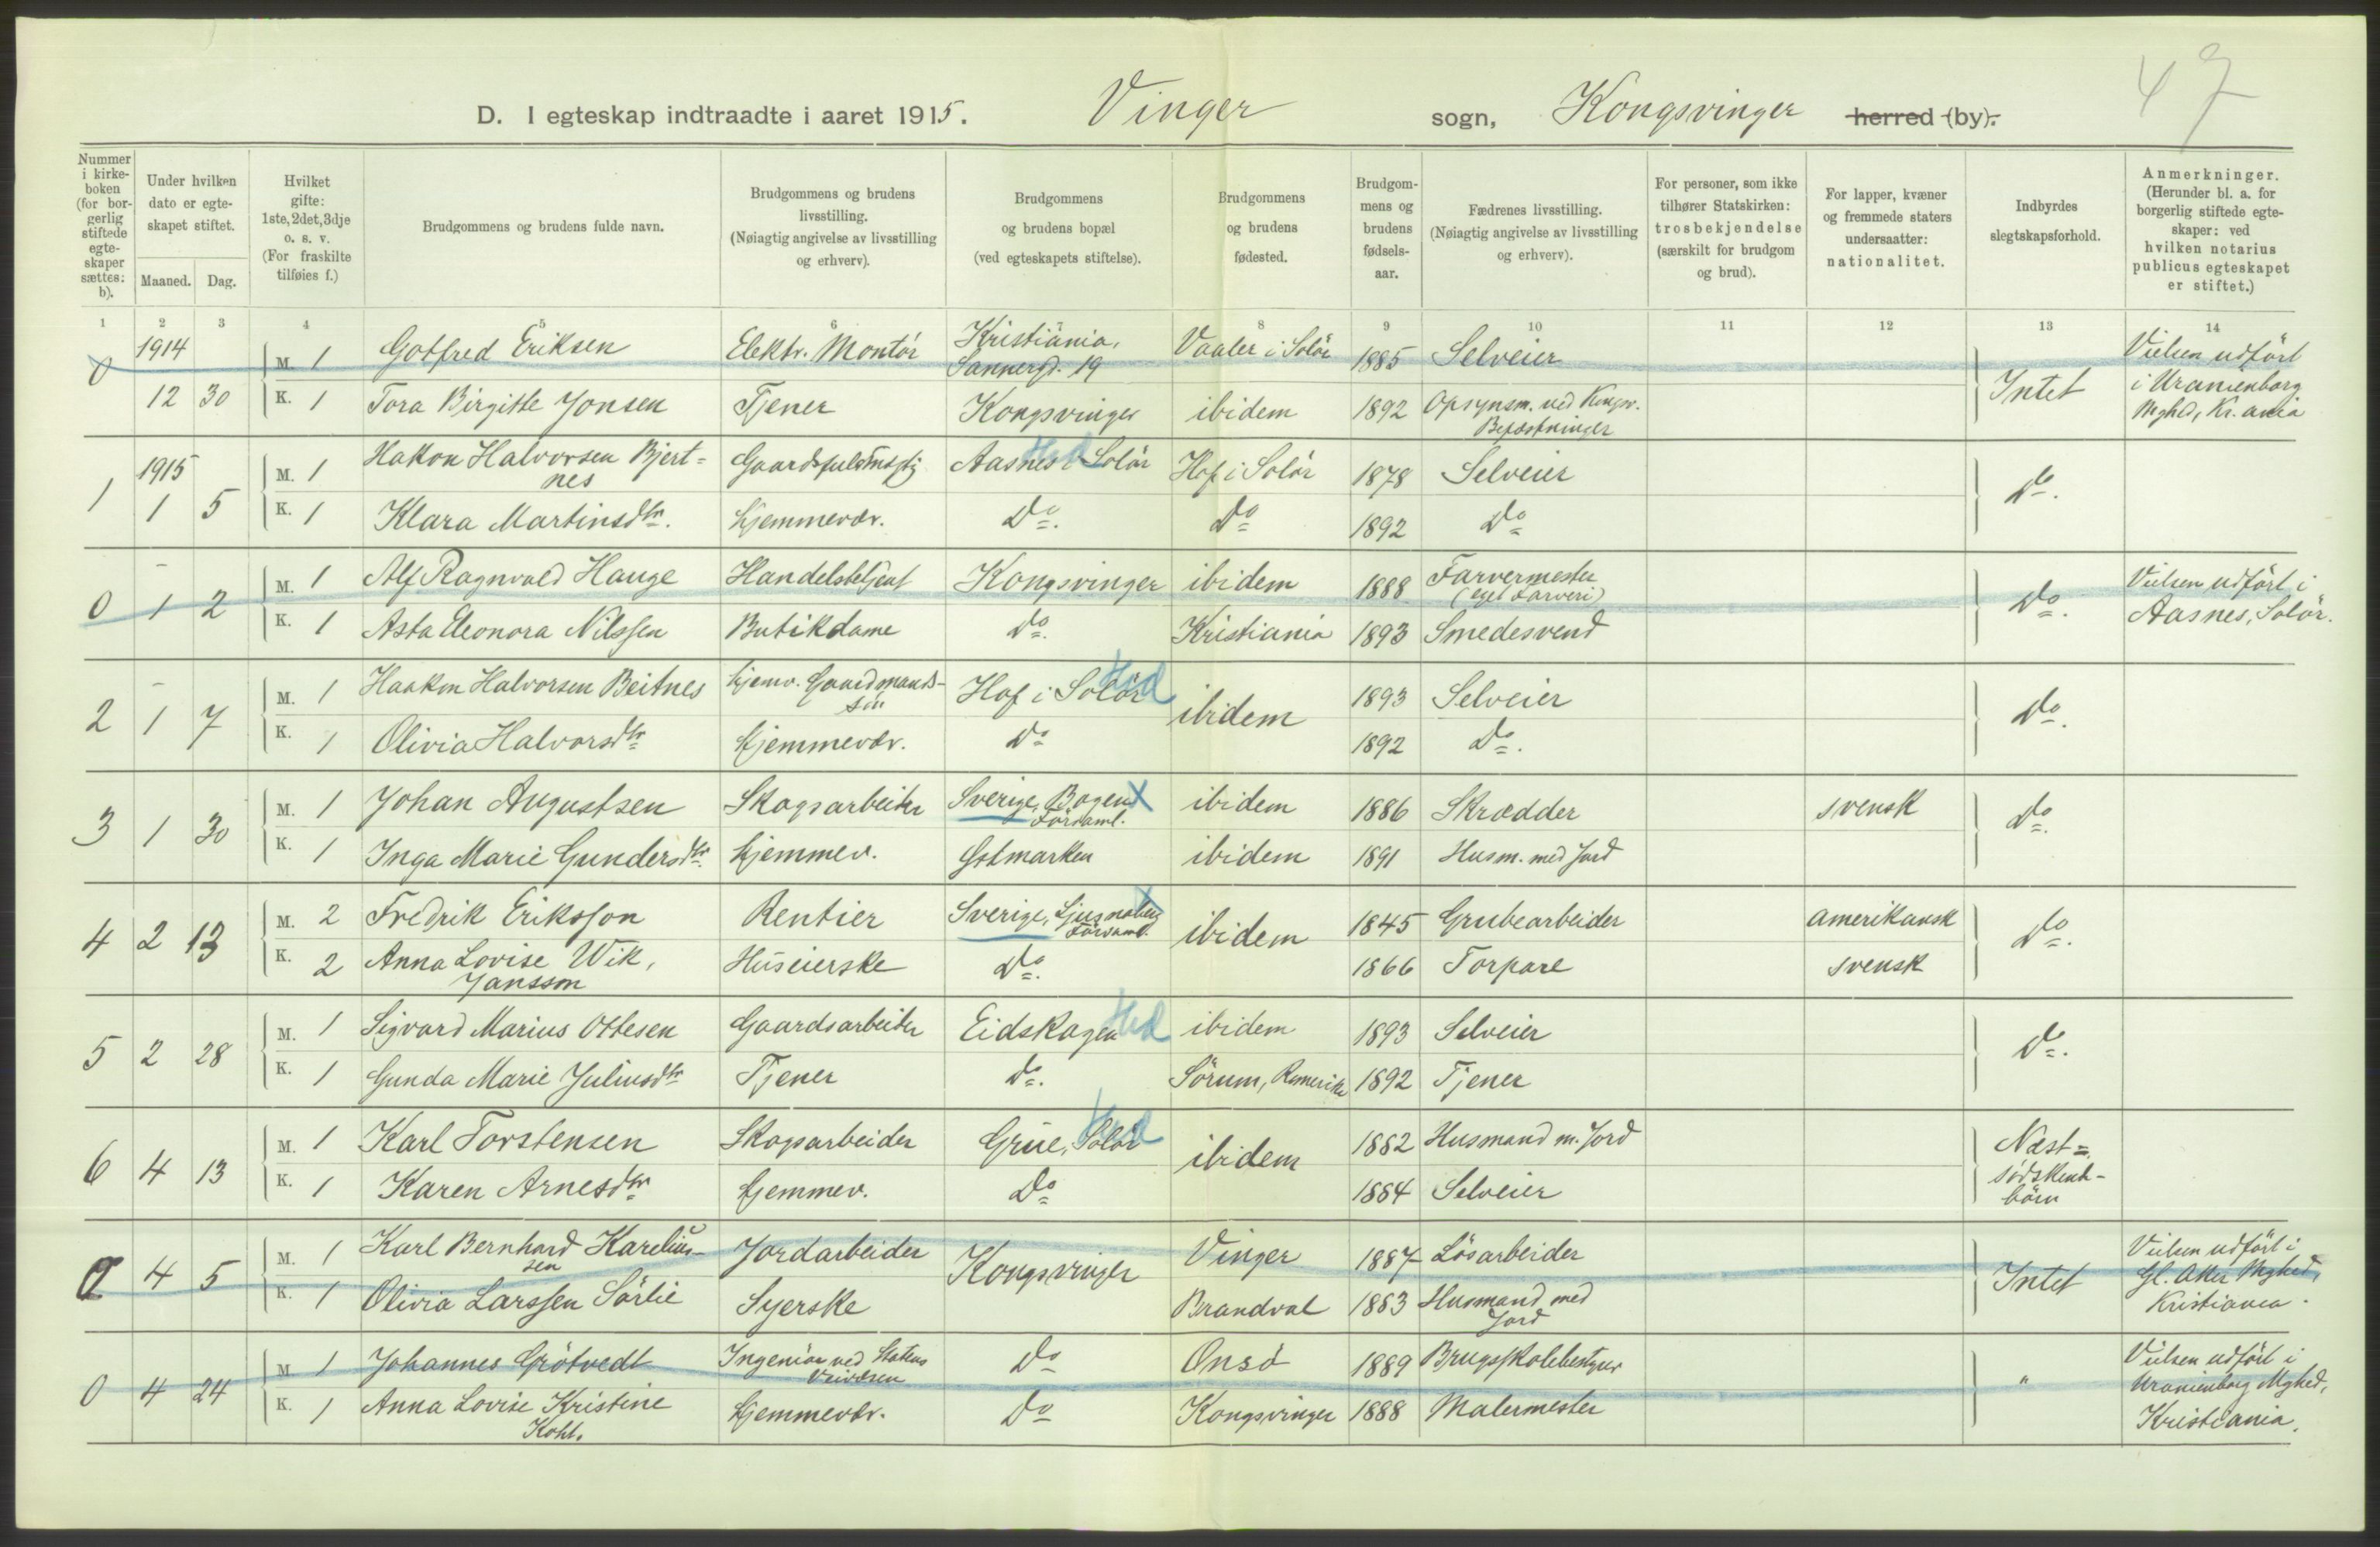 47
D. I egteskap indtraadte i aaret 1915. Vinger sogn, Kongsvinger herred (by).
Nummer i kirke-boken (for bor-gerlig stiftede egte-skaper sættes: b).
Under hvilken dato er egte-skapet stiftet.
Maaned. Dag.
Hvilket gifte: 1ste, 2det, 3dje o. s. v. (For fraskilte tilføies f.)
Brudgommens og brudens fulde navn.
Brudgommens og brudens livsstilling. (Nøiagtig angivelse av livsstilling og erhverv).
Brudgommens og brudens bopæl (ved egteskapets stiftelse).
Brudgommens og brudens fødested.
Brudgom-mens og brudens fødsels-aar.
Fædrenes livsstilling. (Nøiagtig angivelse av livsstilling og erhverv).
For personer, som ikke tilhører Statskirken: trosbekjendelse (særskilt for brudgom og brud).
For lapper, kvæner og fremmede staters undersaatter: nationalitet.
Indbyrdes slegtskapsforhold.
Anmerkninger. (Herunder bl. a. for borgerlig stiftede egte-skaper: ved hvilken notarius publicus egteskapet er stiftet.)
1 2 3 4 5 6 8 9 10 11 12 13 14
0 1914 M. 1 Gotfred Eriksen Elektr. Montör Kristiania, Sannergd. 19 Vaaler i Solör 1885 Selveier Vielsen udfört
12 30 K. 1 Tora Birgitte Jonsen Tjener Kongsvinger ibidem 1892 Opsynsm. ved Kongsv. Befæstninger Intet i Uranienborg Mghd, Kr.ania
1 1915 M. 1 Hakon Halvorsen Bjert=nes Gaardsfuldmægtig Aasnes i Solör Hed Hof i Solör 1878 Selveier
1 5 K. 1 Klara Martinsdtr. Hjemmevær. Do. Do 1892 Do Do.
0 1 2 M. 1 Alf Ragnvald Hauge Handelsbetjent Kongsvinger ibidem 1888 Farvermester (eget Farveri) Do. Vielsen udfört i
K. 1 Asta Eleonora Nilssen Butikdame Do. Kristiania 1893 Smedesvend Aasnes, Solör.
2 1 7 M. 1 Haakon Halvorsen Beitnes Hjemv. Gaardmands-sön Hof i Solör Hed ibidem 1893 Selveier Do.
K. 1 Olivia Halvorsdtr Hjemmevær. Do 1892 Do.
3 1 30 M. 1 Johan Augustsen Skogsarbeider Sverige, Bogen Församl. X ibidem 1886 Skrædder svensk Do.
K. 1 Inga Marie Gundersdtr. Hjemmev. Östmarken ibidem 1891 Husm. med Jord
4 2 13 M. 2 Fredrik Eriksson Rentier Sverige, Ljusnaberg Församl. X ibidem 1845 Grubearbeider amerikansk Do.
K. 2 Anna Lovise Wik, Jansson Huseierske Do. 1866 Torpare svensk
5 2 28 M. 1 Sigvard Marius Ottesen Gaardsarbeider Eidskogen Hed ibidem 1893 Selveier Do.
K. 1 Gunda Marie Juliusdtr Tjener Do. Sörum, Romerike 1892 Tjener
6 4 13 M. 1 Karl Torstensen Skogsarbeider Grue, Solör Hed ibidem 1882 Husmand m. Jord Næst=södskend-börn
K. 1 Karen Arnesdtr Hjemmev. Do 1884 Selveier
0 4 5 M. 1 Karl Bernhard Karelius-sen Jordarbeider Kongsvinger Vinger 1887 Lösarbeider Intet Vielsen udfört i Gl. Aker Mghed,
K. 1 Olivia Larssen Sörlie Syerske Brandval 1883 Husmand med Jord Kristiania.
0 4 24 M 1 Johannes Grötvedt Ingeniör ved Statens Veivæsen Do Onsö 1889 Brugsskolebestyrer " Vielsen udfört i Uranienborg Mghed,
K. 1 Anna Lovise Kristine Koht. Hjemmevær. Do Kongsvinger 1888 Malermester Kristiania.